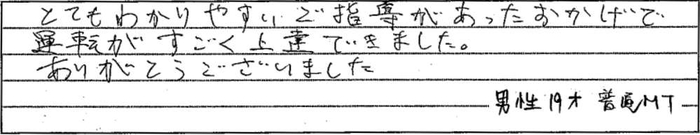 とてもわかりやすいご指導があったおかげで
運転がすごく上達できました。
ありがとうございました
男性 19才 普通MT